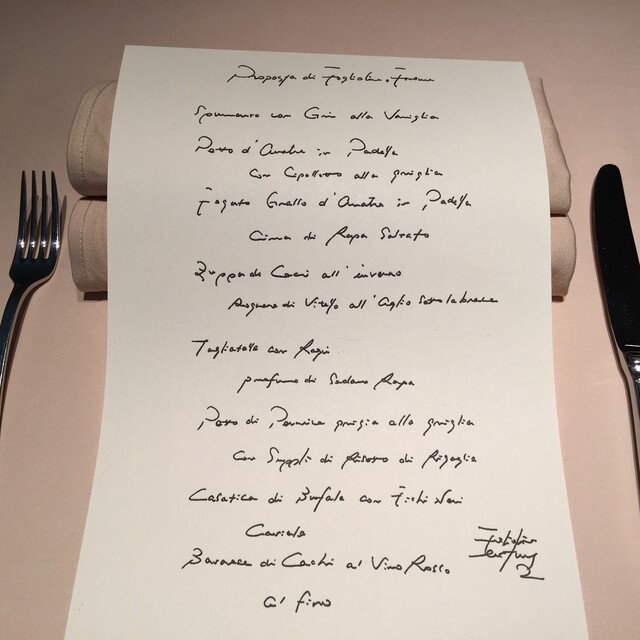 Proposta di
Spumante con Gris alla Vaniglia
Petto d'Anatra in Padella
con Cipollotto alla griglia
Fegato Grasso d'Anatra in Padella
Cima di Rapa Saltato
Zuppa di Ceci all'inverno
di Vitello all'Aglio sotto la brace
Tagliatelle con Ragù
profumo di Sedano Rapa
Petto di Pernice grigia alla griglia
con Supplì di Risotto di Rigaglia
Casatica di Bufala con Fichi Neri
Bavarese di Cachi al Vino Rosso